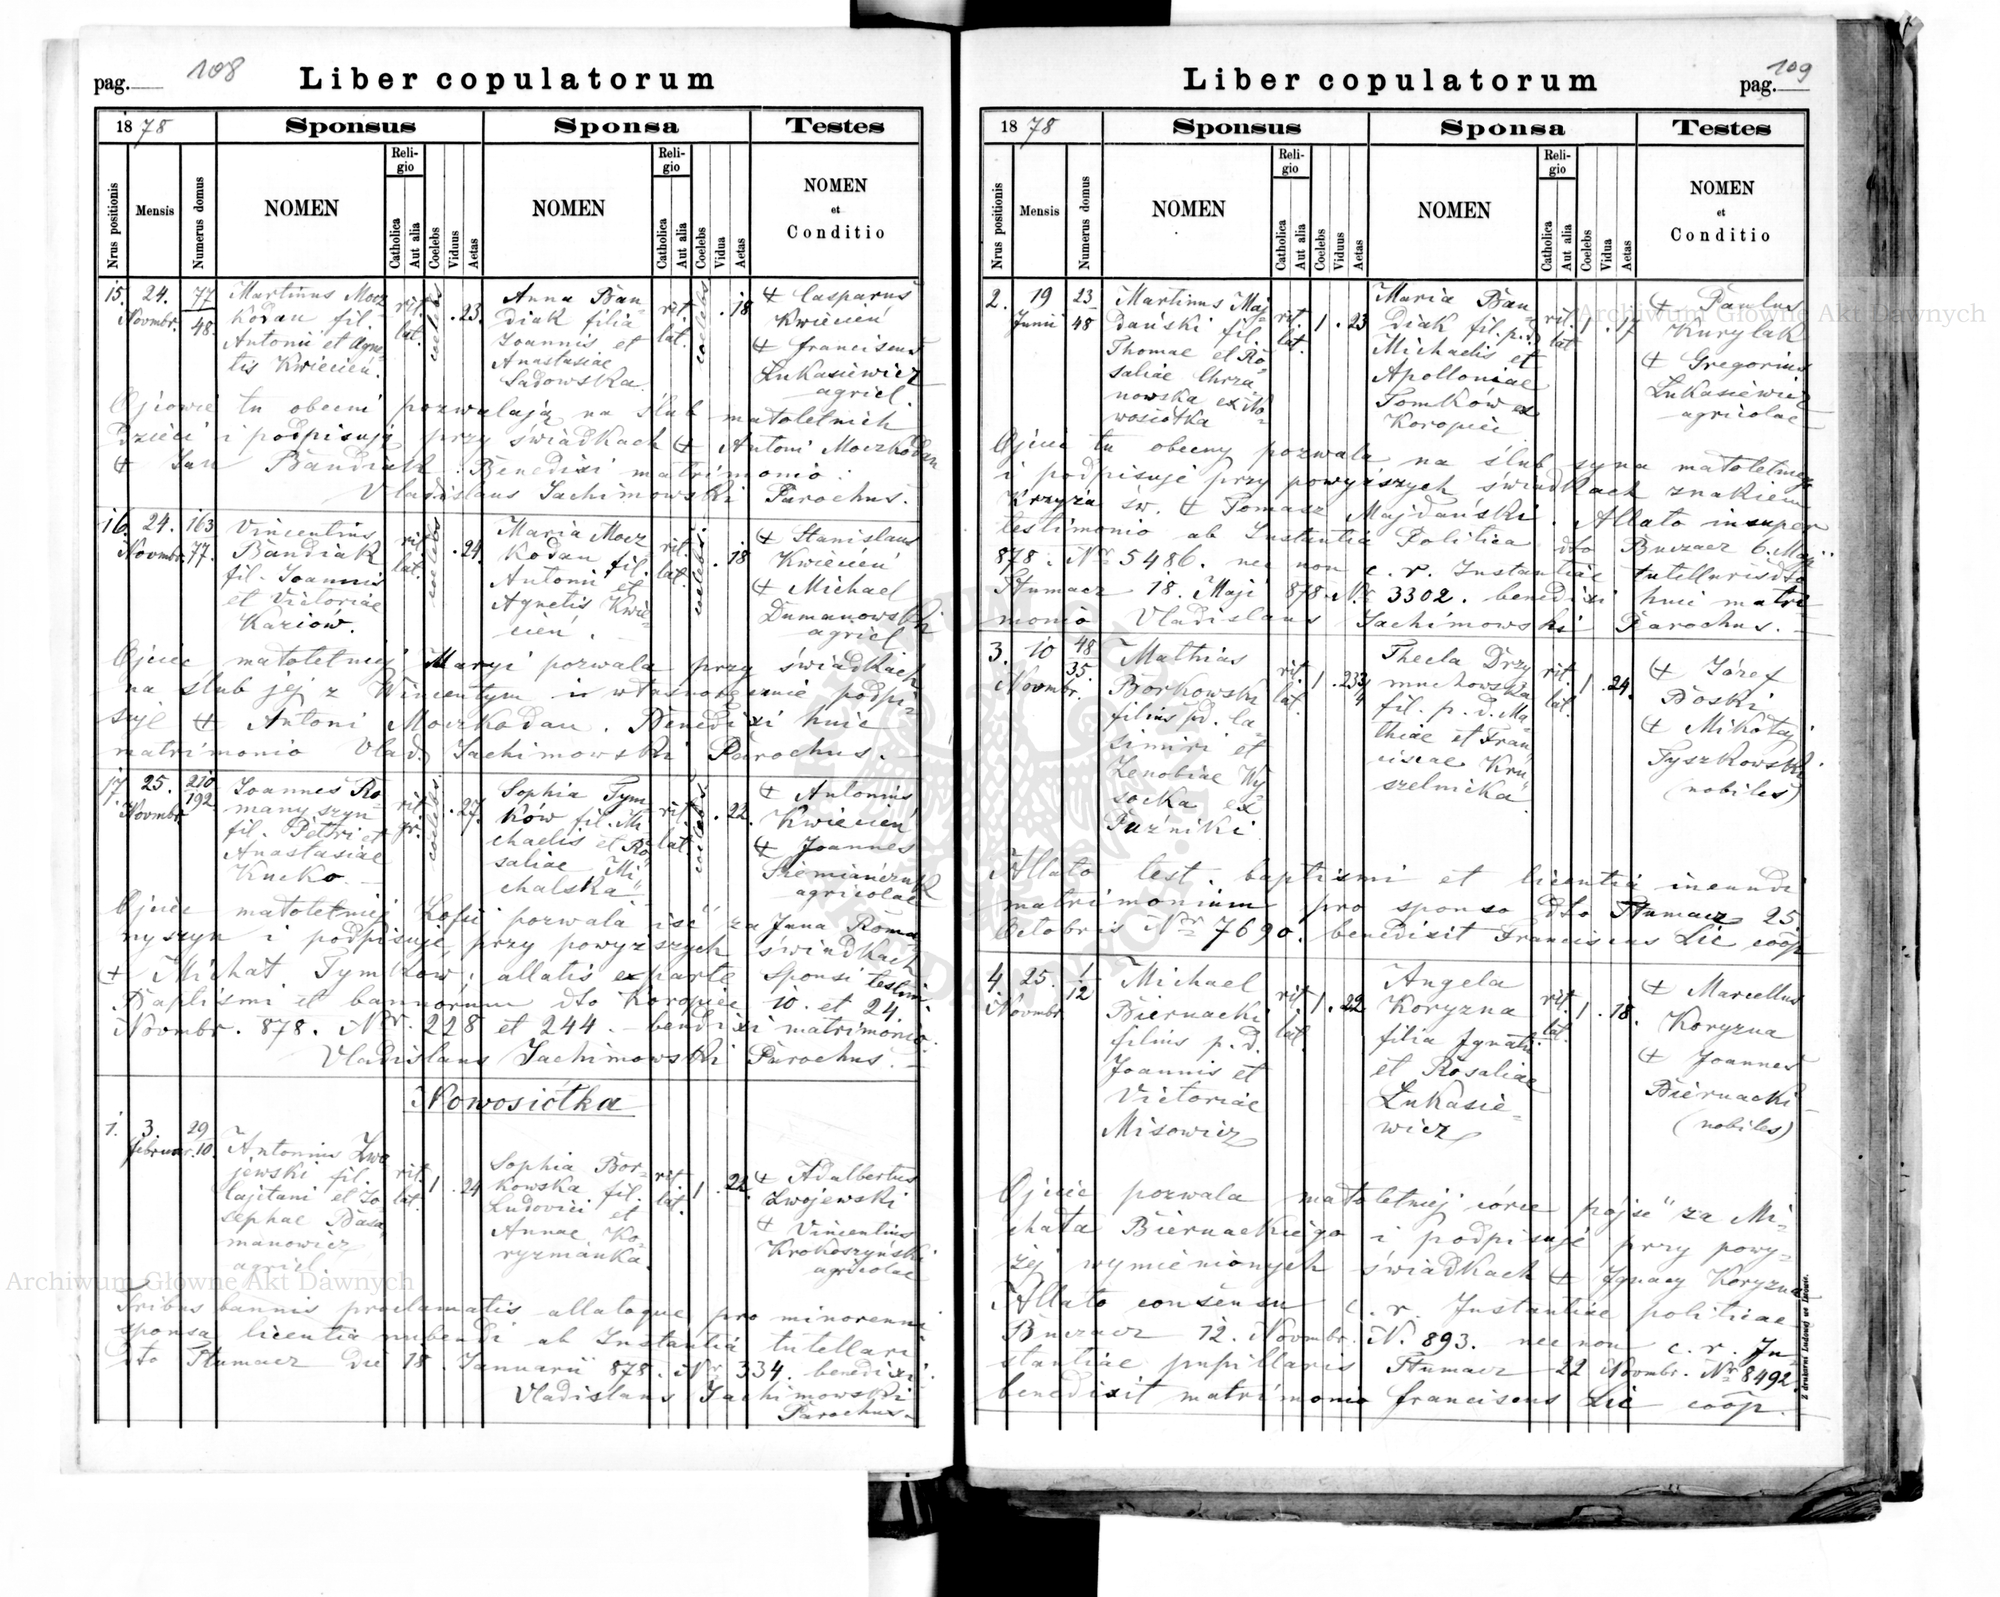 pag. 108 Liber copulatorum
1878 Sponsus Sponsa Testes
Nrus positionis Mensis Numerus domus NOMEN Religio Catholica Aut alia Coelebs Viduus Aetas NOMEN Religio Catholica Aut alia Coelebs Vidua Aetas NOMEN et Conditio
15. 24. Novmbr. 77 48.
Martinus Mocz
kodan fil.
Antonii et Agne
tis Kwiecień.
rit. lat. coelebs 23.
Anna Ban
diak filia
Joannis et
Anastasiae
Sadowska.
rit. lat. coelebs 18
+ Casparus
Kwiecień
+ Franciscus
Łukasiewicz
agricl.
Ojcowie tu obecni pozwalają na ślub małoletnich
dzieci i podpisują przy świadkach + Antoni Moczkodan
+ Jan Bandiak. Benedixi matrimonio.
Vladislaus Jachimowski Parochus.
16. 24. Novmbr. 163 77.
Vincentius
Bandiak
fil. Joannis
et Victoriae
Kaziów.
rit. lat. coelebs 24.
Maria Mocz
kodan fil.
Antonii et
Agnetis Kwie-
cień.
rit. lat. coelebs 18
+ Stanislaus
Kwiecień
+ Michael
Dumanowski
agricl.
Ojciec małoletniej Maryi pozwala przy świadkach
na ślub jej z Wincentym i własnoręcznie podpi-
suje + Antoni Moczkodan. Benedixi huic
matrimonio Vlad. Jachimowski Parochus.
17. 25. Novmbr 210 192
Joannes Ro-
manyszyn
fil. Petri et
Anastasiae
Kucko.
rit. gr. coelebs 27.
Sophia Tym
ków fil. Mi
chaelis et Ro
saliae Mi
chalska
rit. lat. coelebs 22.
+ Antonius
Kwiecień
+ Joannes
Siemiańczuk
agricolae
Ojciec małoletniej Zofii pozwala iść za Jana Roma-
nyszyn i podpisuje przy powyższych świadkach
+ Michał Tymków; allatis ex parte sponsi testim.
Baptismi et bannorum dto Koropiec 10. et 24.
Novmbr. 878. Nr. 228 et 244. benedixi matrimonio.
Vladislaus Jachimowski Parochus.
Nowosiółka
1. 3 februar. 29 10.
Antonius Zwo
jewski fil.
Cajetani et Jo-
sephae Basa
manowicz
agricl.
rit. lat. 1 24
Sophia Bor-
kowska fil.
Ludovici et
Annae Ko-
ryzmanka.
rit. lat. 1 22
+ Adalbertus
Zwojewski
+ Vincentius
Krokoszyński
agricolae
Tribus bannis proclamatis allatoque pro minorenni
sponsa licentia nubendi ab Instantia tutellari
dto Tłumacz die 18. Januarii 878. Nr 334. benedixi
Vladislaus Jachimowski
Parochus.
Liber copulatorum pag. 109
1878 Sponsus Sponsa Testes
Nrus positionis Mensis Numerus domus NOMEN Religio Catholica Aut alia Coelebs Viduus Aetas NOMEN Religio Catholica Aut alia Coelebs Vidua Aetas NOMEN et Conditio
2. 19 Junii 23 48
Martinus Maj
dański fil.
Thomae et Ro
saliae Chrza
nowska ex No
wosiółka
rit. lat. 1 23
Maria Ban
diak fil. p.d.
Michaelis et
Apolloniae
Tomków ex
Koropiec
rit. lat 1 17
+ Paulus
Kurylak
+ Gregorius
Łukasiewicz
agricolae
Ojciec tu obecny pozwala na ślub syna małoletniego
i podpisuje przy powyższych świadkach znakiem
Krzyża św. + Tomasz Majdański. Allato insuper
testimonio ab Instantia Politica dto Buczacz 6. Maji
878. Nr 5486. nec non c. r. Instantiae tutellaris dto
Tłumacz 18. Maji 878. Nr 3302. benedixi huic matri
monio Vladislaus Jachimowski Parochus.
3. 10 Novmbr. 48 35.
Mathias
Borkowski
filius p.d. Ca
simiri et
Zenobiae Wy
socka ex
Puźniki
rit. lat. 1 23 3/4
Thecla Drzy
muchowska
fil. p. d. Ma
thiae et Fran
ciscae Kru
szelnicka.
rit. lat. 1 24.
+ Józef
Boski
+ Mikołaj
Tyszkowski
(nobiles)
Allato test. baptismi et licentia ineundi
matrimonium pro sponso dto Tłumacz 25.
Octobris Nr 7690. benedixit Franciscus Lic coop
4. 25. Novmbr 1 12
Michael
Biernacki
filius p. d.
Joannis et
Victoriae
Misowicz
rit. lat. 1 22
Angela
Koryzna
filia Ignatii
et Rosaliae
Łukasie-
wicz
rit. lat. 1 18.
+ Marcellus
Koryzna
+ Joannes
Biernacki
(nobiles)
Ojciec pozwala małoletniej córce pójść za Mi-
chała Biernackiego i podpisuje przy powy-
żej wymienionych świadkach + Ignacy Koryzna
Allato consensu c. r. Instantiae politicae
Buczacz 12. Novmbr. N. 893. nec non c. r. In
stantiae pupillaris Tłumacz 22 Novmbr. Nr 8492.
benedixit matrimonio Franciscus Lic coop.
Z drukarni Ludowej we Lwowie.
Archiwum Główne Akt Dawnych
Archiwum Główne Akt Dawnych